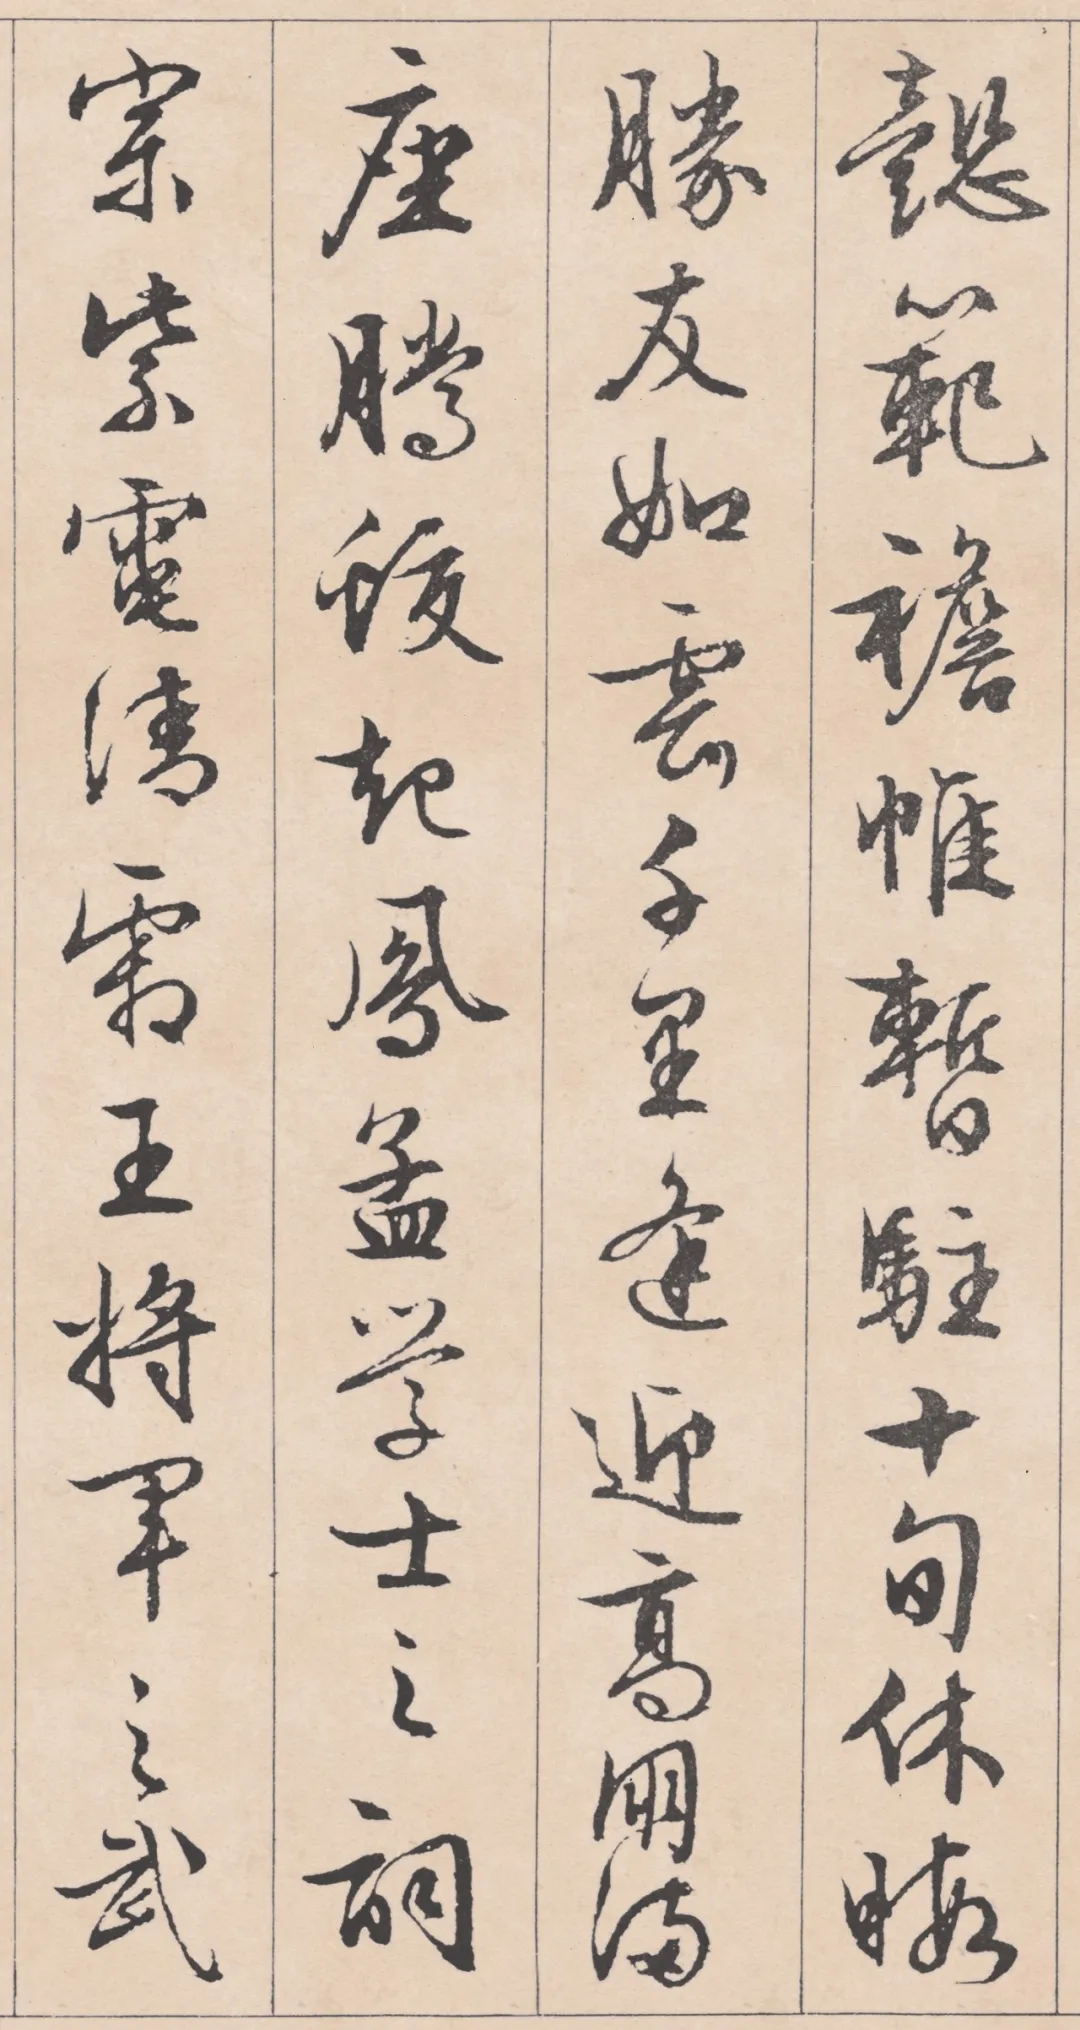 懿範襜帷暫駐十旬休暇
勝友如雲千里逢迎高朋滿
座騰蛟起鳳孟学士之詞
宗紫電清霜王將軍之武